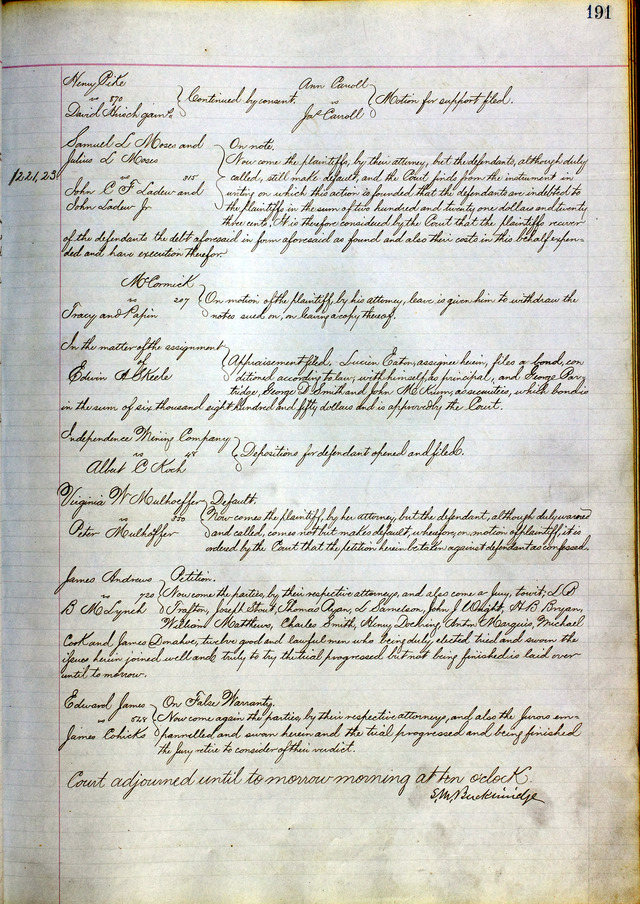 191
Henry Pike
vs 870 Continued by consent.
David Hirsch garn.
Ann Carroll
vs Motion for support filed.
Jas Carroll
Samuel L Moses and
Julius L Moses
vs 315
John C F Ladew and
John Ladew Jr
$221,23
On note.
Now come the plaintiffs, by their attorney, but the defendants, although duly
called, still make default, and the Court finds from the instrument in
writing, on which this action is founded that the defendants are indebted to
the plaintiffs in the sum of two hundred and twenty one dollars and twenty
three cents. It is therefore considered by the Court that the plaintiffs recover
of the defendants the debt aforesaid in form aforesaid as found and also their costs in this behalf expen-
ded and have execution therefor.
McCormick
vs 207
Tracy and Papin
On motion of the plaintiff, by his attorney, leave is given him to withdraw the
notes sued on, on leaving a copy thereof.
In the matter of the assignment
of
Edwin A Skeele
Appraisement filed. Lucien Eaton, assignee herein, files a bond, con
ditioned according to law, with himself, as principal, and George Par
tridge, George D Smith and John McKium, as securities, which bond is
in the sum of six thousand eight hundred and fifty dollars and is approved by the Court.
Independence Mining Company
vs 48
Albert C Koch
Depositions for defendant opened and filed.
Virginia W Mulhoffer
vs 350
Peter Mulhoffer
Default.
Now comes the plaintiff, by her attorney, but the defendant, although duly warned
and called, comes not but makes default, wherefore, on motion of plaintiff, it is
ordered by the Court that the petition herein be taken against defendant as confessed.
James Andrews
vs 720
B M Lynch
Petition.
Now come the parties, by their respective attorneys, and also come a Jury, towit; L B
Trafton, Joseph Stout, Thomas Ryan, L Samelson, John J Wright, H B Bryan,
William Matthews, Charles Smith, Henry Docking, Antn Marquis, Michael
Cook and James Donahue, twelve good and lawful men who being duly, elected tried and sworn the
issues herein joined well and truly to try the trial progressed but not being finished is laid over
until to morrow.
Edward James
vs 528
James Cohicks
On False Warranty.
Now come again the parties, by their respective attorneys, and also the Jurors em-
panneled and sworn herein and the trial progressed and being finished
the Jury retire to consider of their verdict.
Court adjourned until to morrow morning at ten o'clock.
S.M. Breckinridge